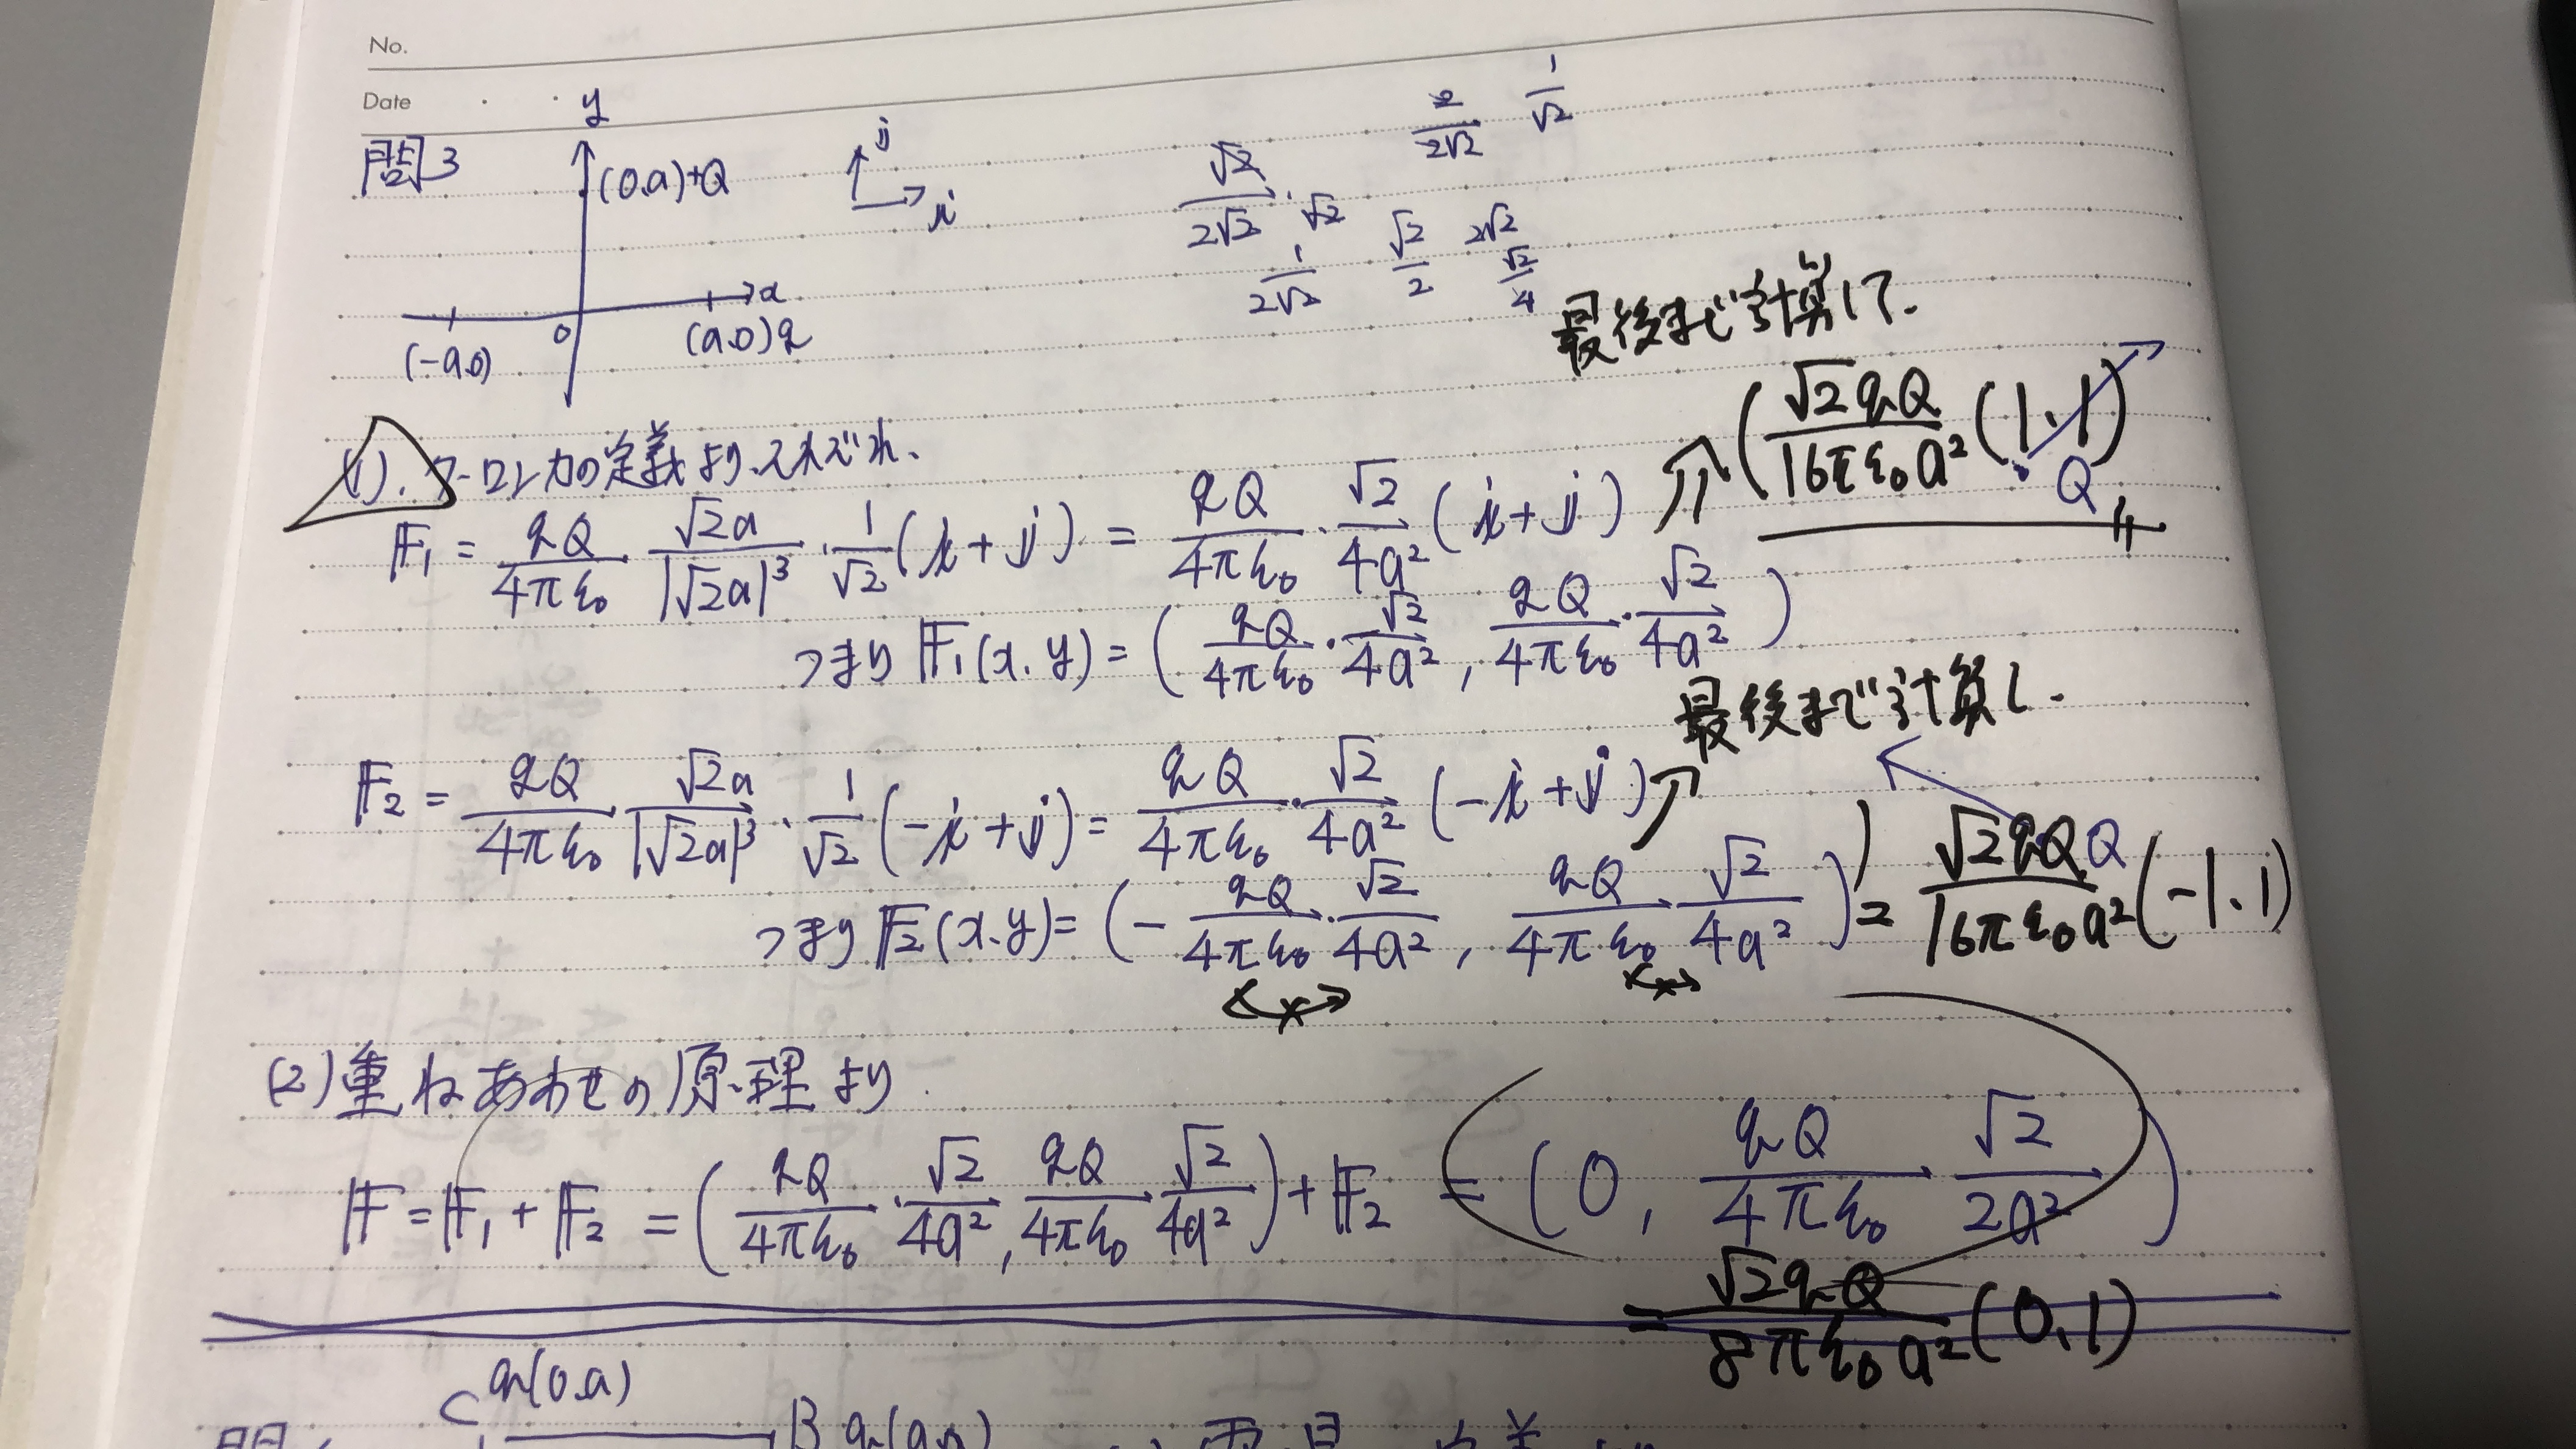 No.
Date
y
問3
(0.a)+Q
j
i
2/2√2
1/√2
√2/2√2・√2
1/2√2
√2/2
2√2
√2/4
x
0
(-a.0)
(a.0)q
最後まで計算して.
(√2qQ/16πε₀a² (1.1)
Q
(1).クーロン力の定義より.それぞれ、
F₁ = qQ/4πε₀ √2a/|√2a|³・1/√2(i+j) = qQ/4πε₀・√2/4a²(i+j)
つまりF₁(x.y)=(qQ/4πε₀・√2/4a², qQ/4πε₀・√2/4a²)
最後まで計算し.
F₂ = qQ/4πε₀ √2a/|√2a|³・1/√2(-i+j) = qQ/4πε₀・√2/4a²(-i+j)
Q
つまりF₂(x.y)=(-qQ/4πε₀・√2/4a², qQ/4πε₀ √2/4a²) = √2qQ/16πε₀a²(-1.1)
(2)重ねあわせの原理より
F=F₁+F₂ = (qQ/4πε₀・√2/4a², qQ/4πε₀ √2/4a²)+F₂ = (0, qQ/4πε₀ √2/2a²)
= √2qQ/8πε₀a²(0,1)
C q(0.a)
B